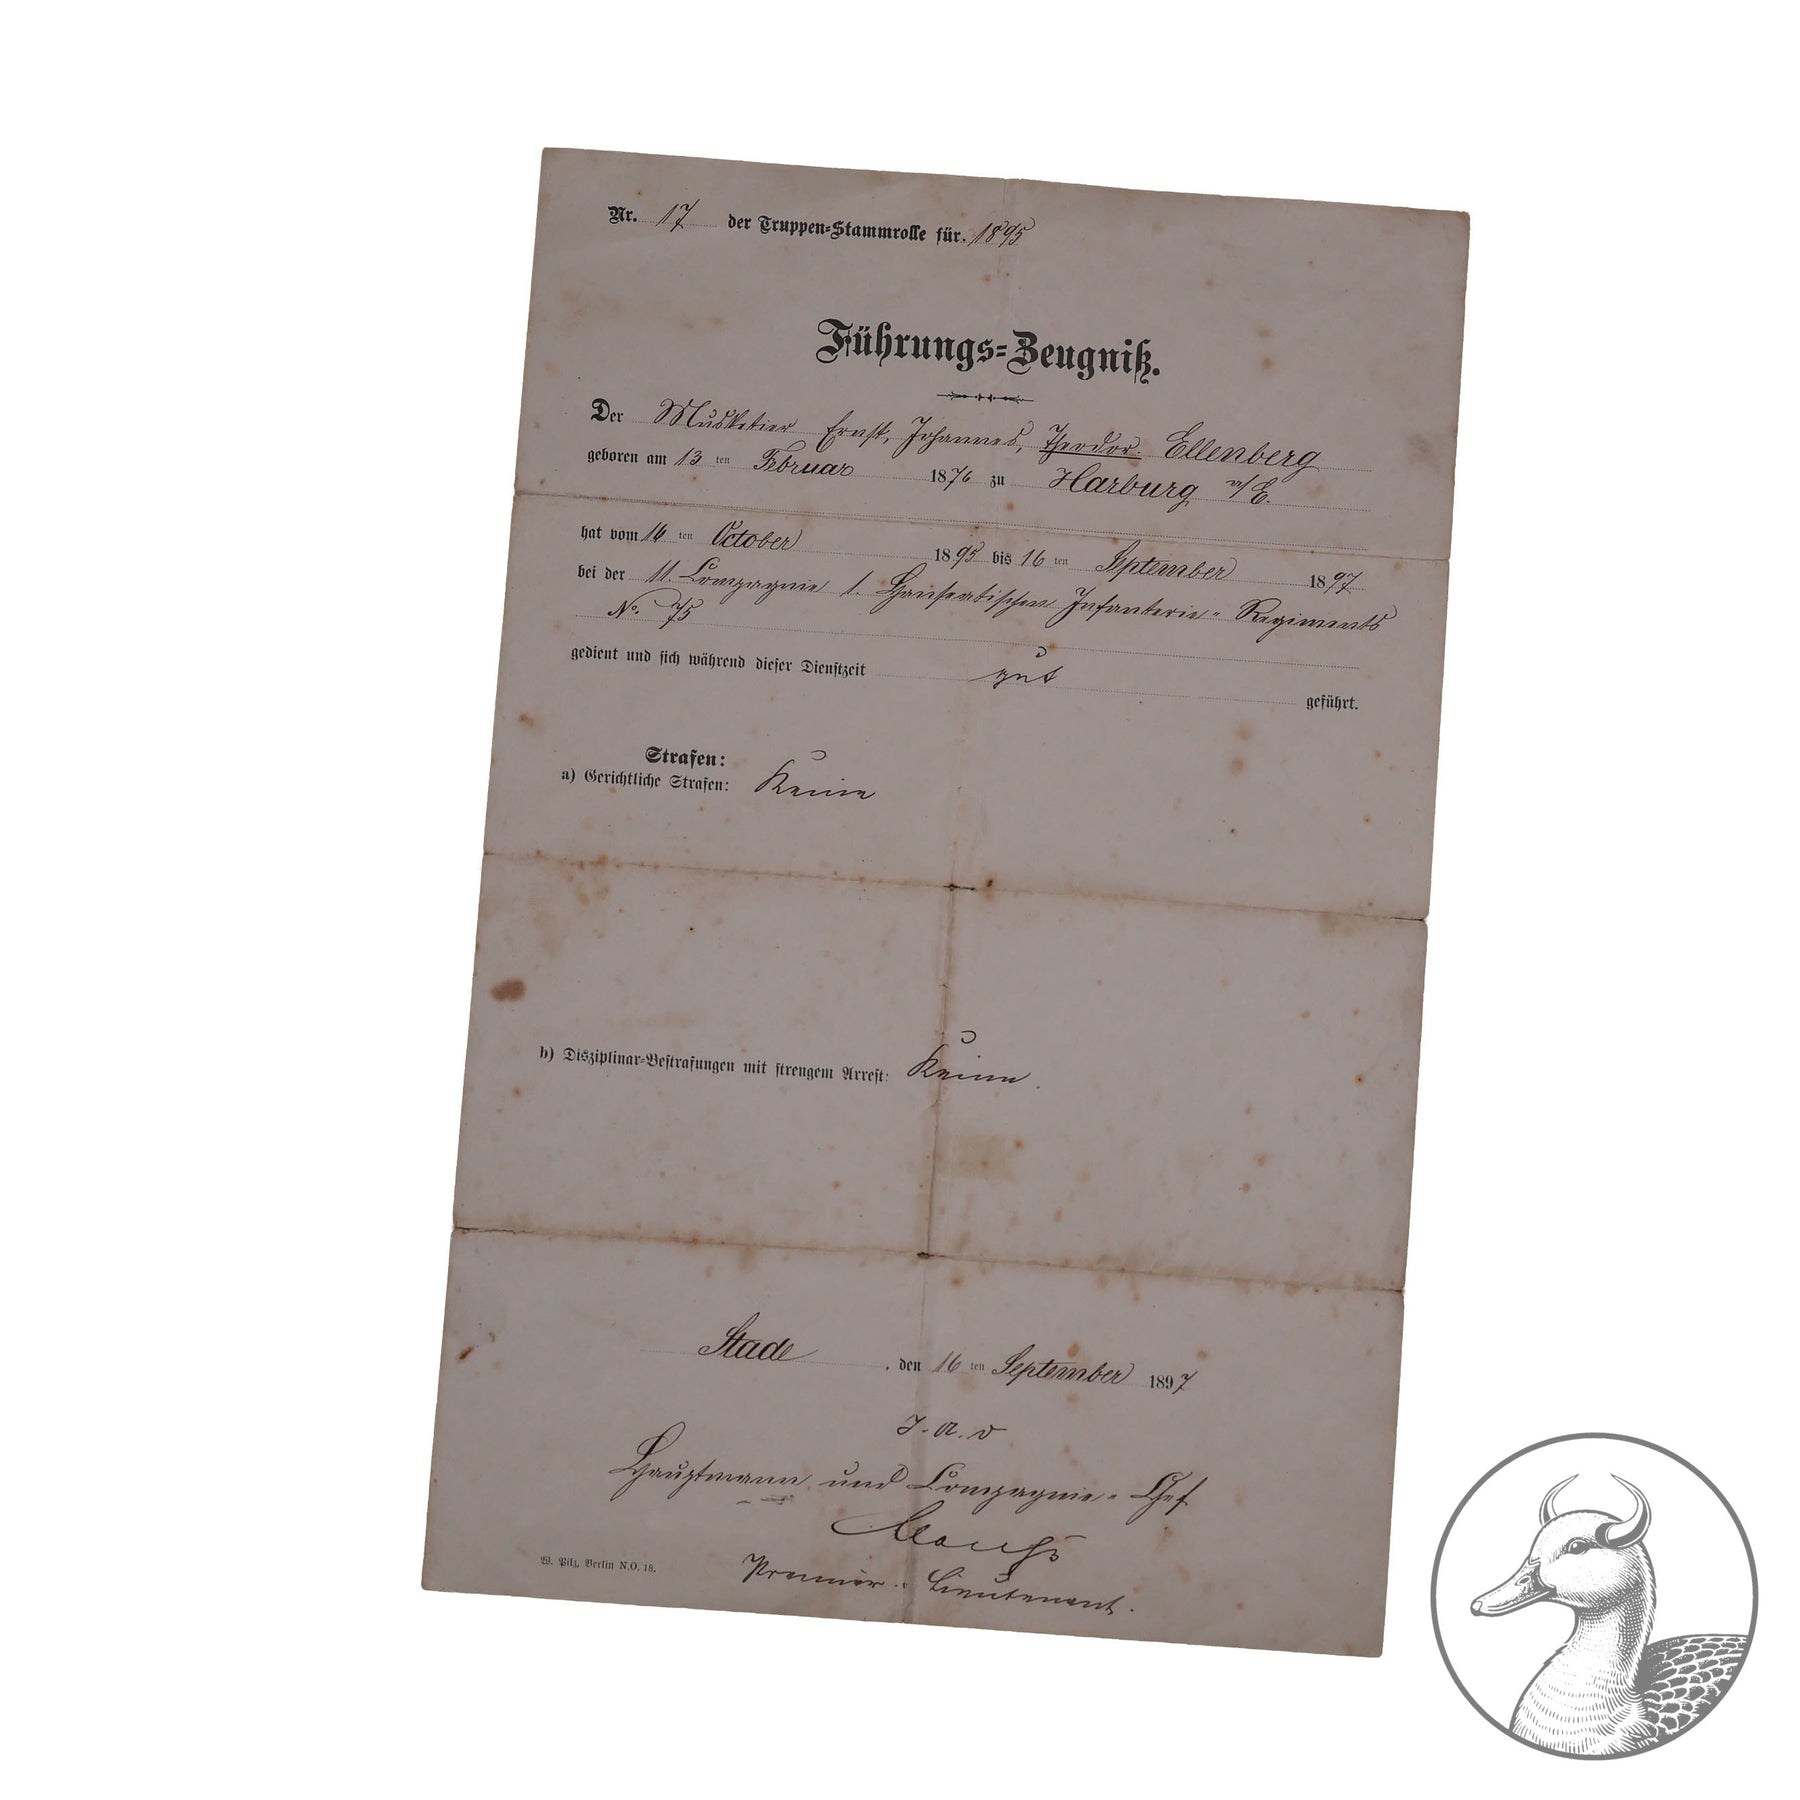 Nr. 17 der Truppen-Stammrolle für 1895
Führungs-Zeugniß.
Der Musketier Ernst, Johannes, Theodor Ellenberg
geboren am 13 ten Februar 1876 zu Harburg a/E.
hat vom 16 ten October 1895 bis 16 ten September 1897
bei der 11. Compagnie 1. Hanseatischen Infanterie-Regiments
No. 75
gedient und sich während dieser Dienstzeit gut geführt.
Strafen:
a) Gerichtliche Strafen: Keine
b) Disziplinar-Bestrafungen mit strengem Arrest: Keine.
Stade, den 16 ten September 1897
Hauptmann und Compagnie-Chef
Premier-Lieutenant.
W. Pilz, Berlin N.O. 18.